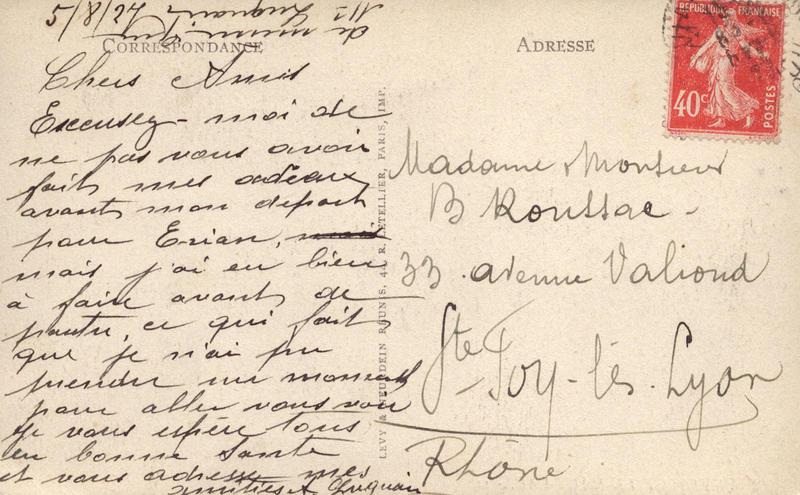 5/8/27
CORRESPONDANCE
Chers Amis
Excusez-moi de
ne pas vous avoir
fait mes adieux
avant mon départ
pour
mais j'ai eu bien
à faire avant de
partir, ce qui fait
que je n'ai pu
prendre un moment
pour aller vous voir
Je vous espère tous
en bonne santé
et vous adresse mes
amitiés A
LEVY & NEURDEIN RÉUNIS, 44, R. LETELLIER, PARIS, IMP.
ADRESSE
RÉPUBLIQUE FRANÇAISE
40c
POSTES
Madame & Monsieur
B Roussac -
33 avenue Valioud
Ste-Foy-lès-Lyon
Rhône